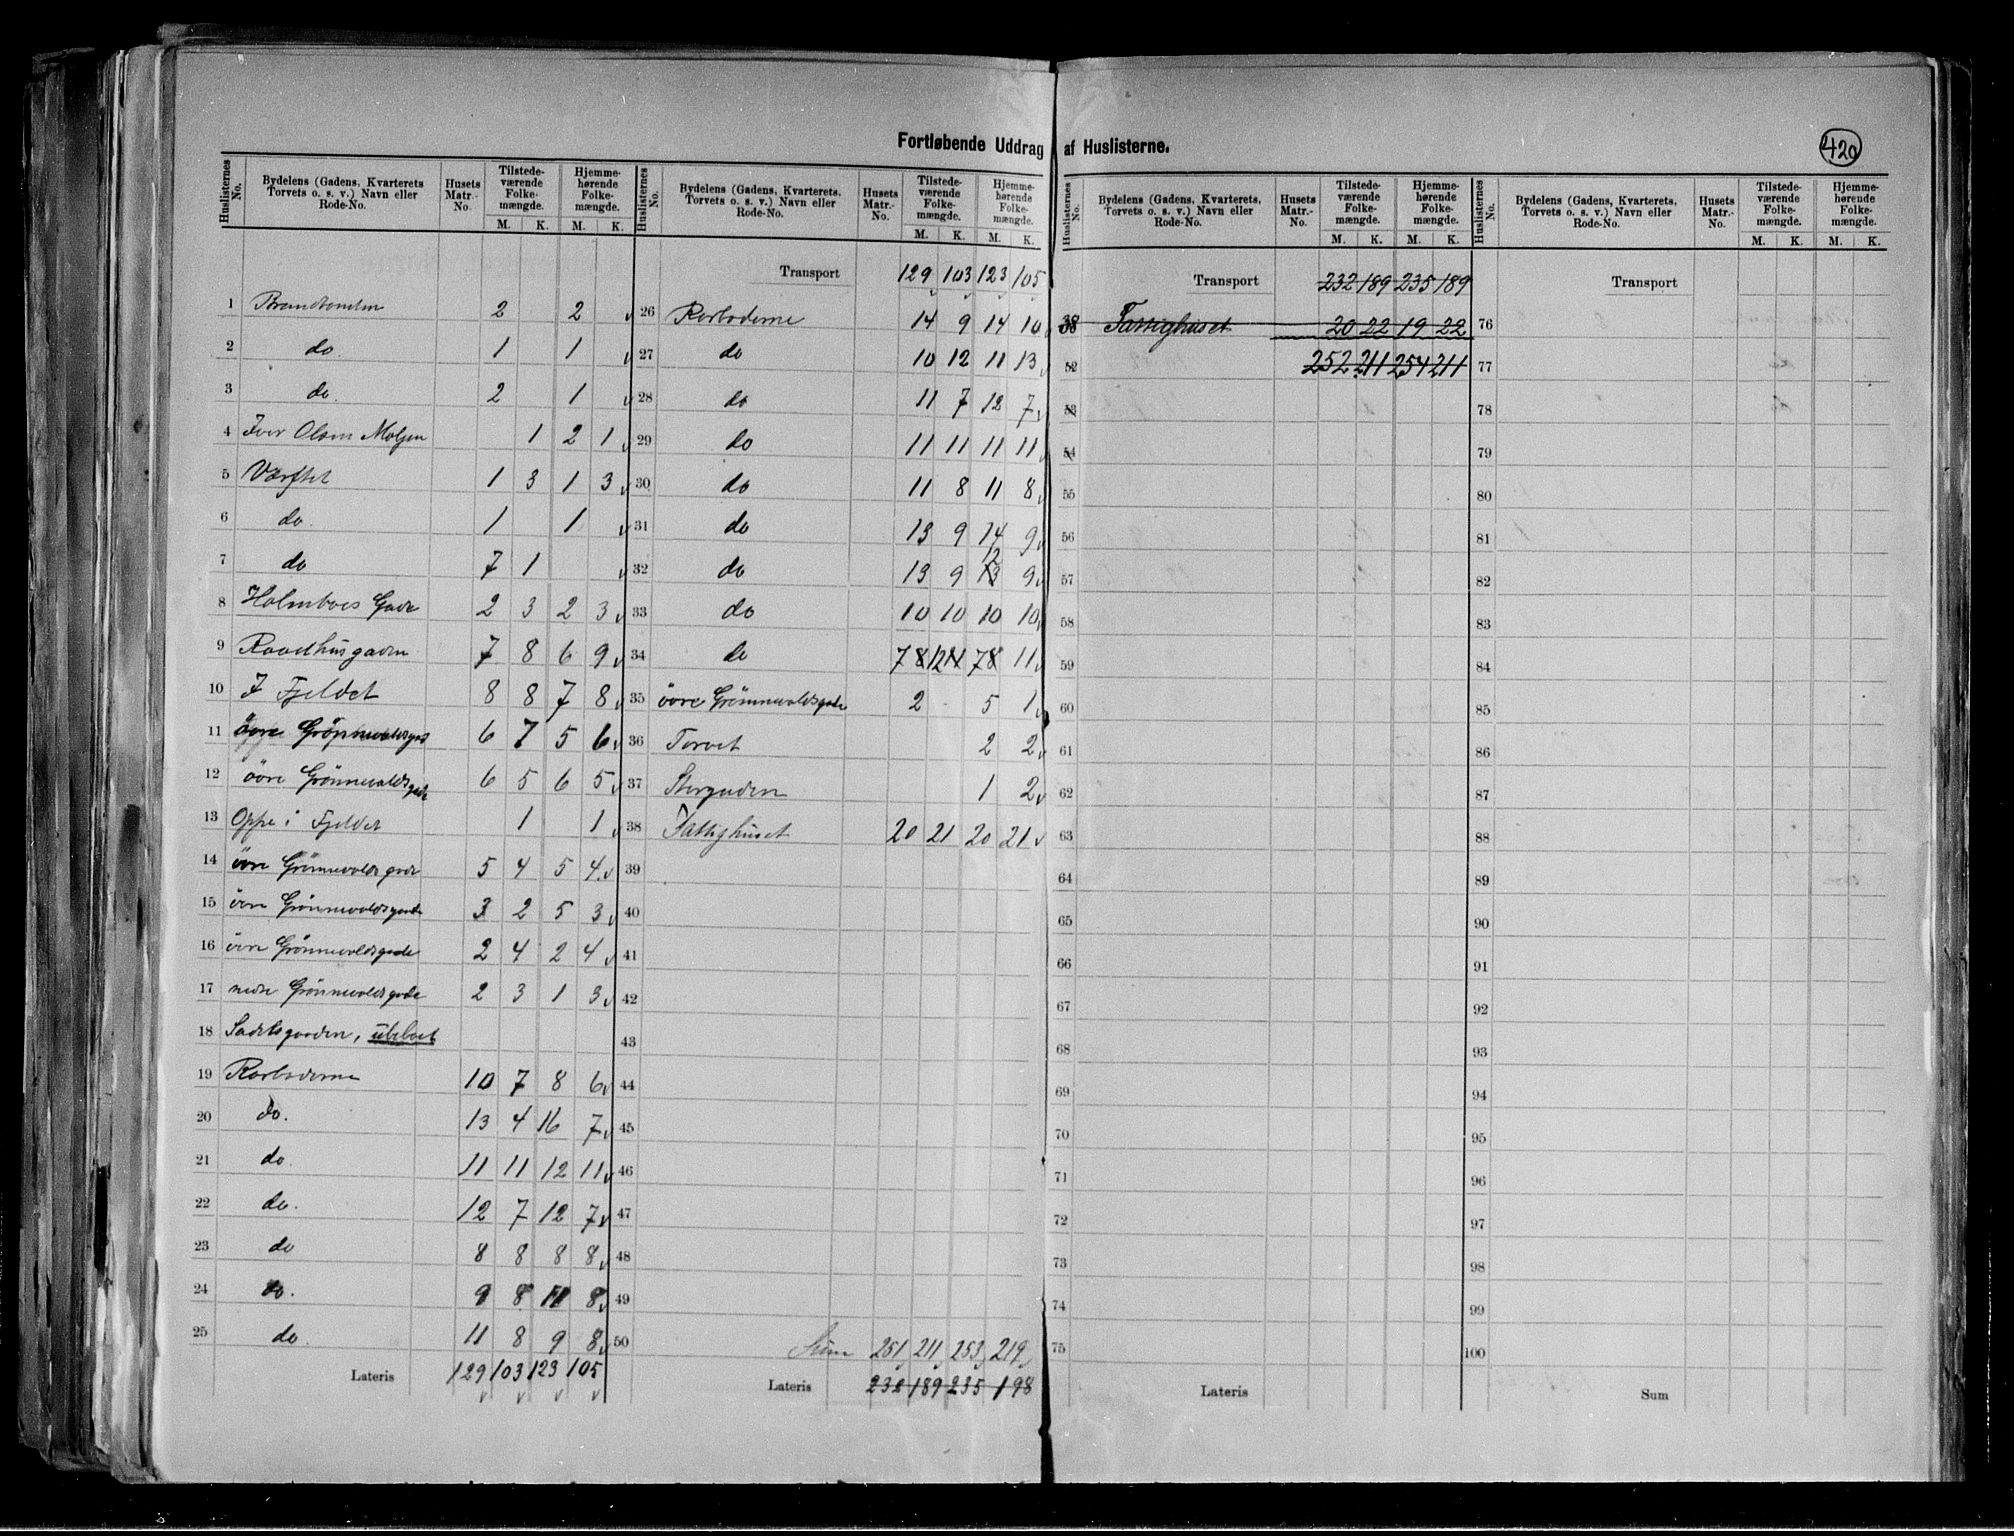 420
Fortløbende Uddrag af Huslisterne.
Huslisternes No. Bydelens (Gadens, Kvarterets Torvets o. s. v.) Navn eller Rode-No. Husets Matr.-No. Tilstede-værende Folke-mængde. M. K. Hjemme-hørende Folke-mængde. M. K.
1 2 2
2 do. 1 1
3 do. 2 1
4 Iver Olsens Moljen 1 2 1
5 Værftet 1 3 1 3
6 do. 1 1
7 do 7 1
8 Holmboes Gade 2 3 2 3
9 Raadhusgaden 7 8 6 9
10 I Fjeldet 8 8 7 8
11 övre Grønnevoldsgad 6 7 5 6
12 övre Grönnevoldsgade 6 5 6 5
13 Oppe i Fjeldet 1 1
14 övre Grönnevoldsgade 5 4 5 4
15 övre Grönnevoldsgade 3 2 5 3
16 övre Grönnevoldsgade 2 4 2 4
17 nedre Grönnevoldsgade 2 3 1 3
18 ubeboet
19 Rorboderne 10 7 8 6
20 do. 13 4 16 7
21 do. 11 11 12 11
22 do. 12 7 12 7
23 do 8 8 8 8
24 do. 9 8 11 8
25 do. 11 8 9 8
Lateris 129 103 123 105
Huslisternes No. Bydelens (Gadens, Kvarterets, Torvets o. s. v.) Navn eller Rode-No. Husets Matr.-No. Tilstede-værende Folke-mængde. M. K. Hjemme-hørende Folke-mængde. M. K.
Transport 129 103 123 105
26 Rorboderne 14 9 14 10
27 do 10 12 11 13
28 do 11 7 12 7
29 do 11 11 11 11
30 do 11 8 11 8
31 do 13 9 14 9
32 do 13 9 12 13 9
33 do 10 10 10 10
34 do 7 8 12 11 7 8 11
35 övre Grönnevoldsgade 2 5 1
36 Torvet 2 2
37 Storgaden 1 2
38 Fattighuset 20 21 20 21
39
40
41
42
43
44
45
46
47
48
49
50 Sum 251 211 253 219
Lateris 232 189 235 198
Huslisternes No. Bydelens (Gadens, Kvarterets Torvets o. s. v.) Navn eller Rode-No. Husets Matr.-No. Tilstede-værende Folke-mængde. M. K. Hjemme-hørende Folke-mængde. M. K.
Transport 232 189 235 189
38 Fattighuset 20 22 19 22
52 252 211 254 211
53
54
55
56
57
58
59
60
61
62
63
64
65
66
67
68
69
70
71
72
73
74
75
Lateris
Huslisternes No. Bydelens (Gadens, Kvarterets, Torvets o. s. v.) Navn eller Rode-No. Husets Matr.-No. Tilstede-værende Folke-mængde. M. K. Hjemme-hørende Folke-mængde. M. K.
Transport
76
77
78
79
80
81
82
83
84
85
86
87
88
89
90
91
92
93
94
95
96
97
98
99
100
Sum